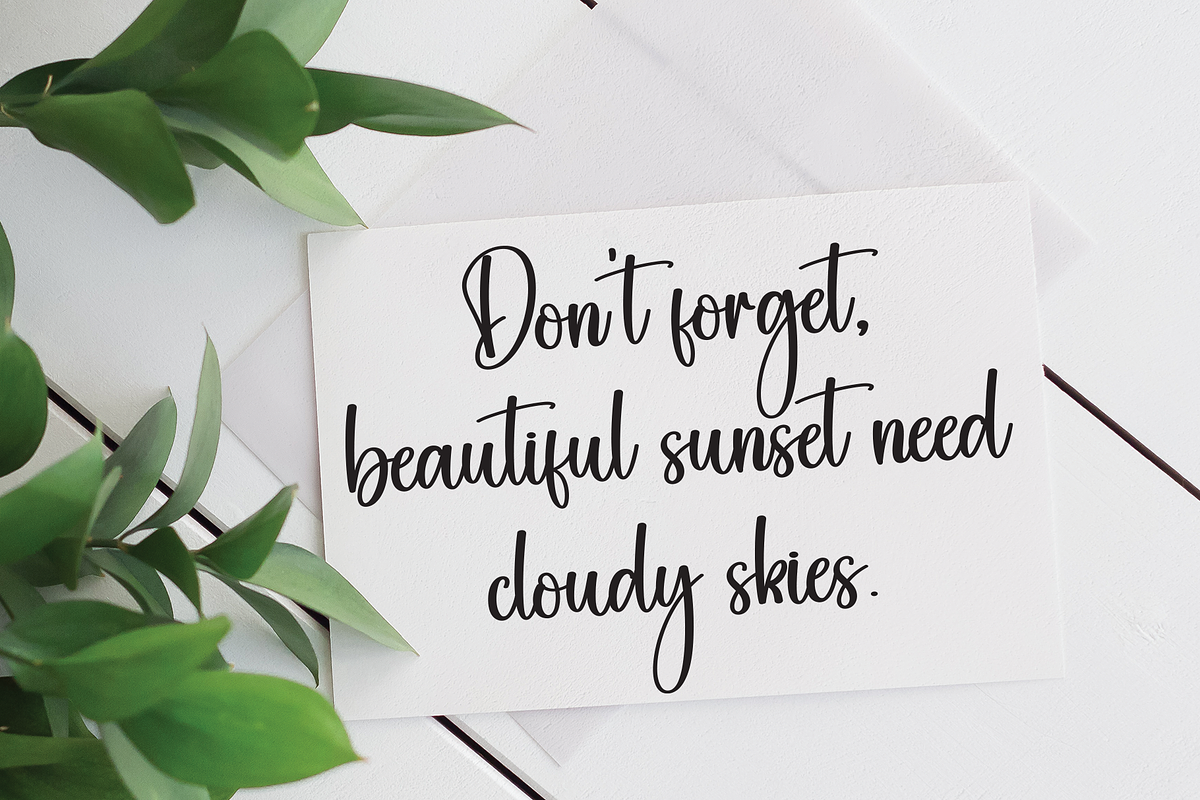 Don't forget,
beautiful sunset need
cloudy skies.